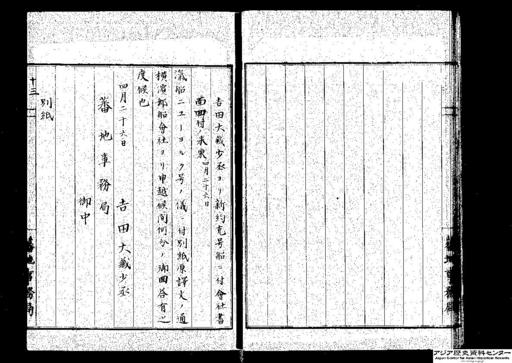 吉田大藏少丞ヨリ新約克号船ニ付會社書
面回付ノ来柬四月二十六日
滊船ニユーヨルク号ノ儀ニ付別紙原譯文ノ通
横濱郵船會社ヨリ申越候間何分ノ御回答有之
度候也
四月二十六日
吉田大藏少丞
蕃地事務局
御中
別紙
十三
蕃地事務局
アジア歴史資料センター
Japan Center for Asian Historical Records